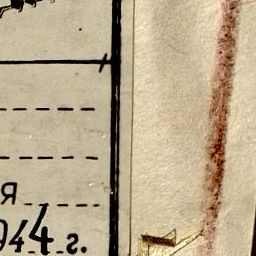 я
944 г.